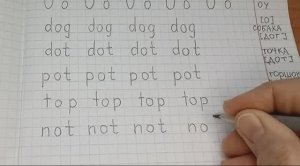 оу
dog dog dog dog
[о]
СОБАКА
[ДОГ]
dot dot dot dot
ТОЧКА
[ДОТ]
pot pot pot pot
горшок
top top top top
not not not no